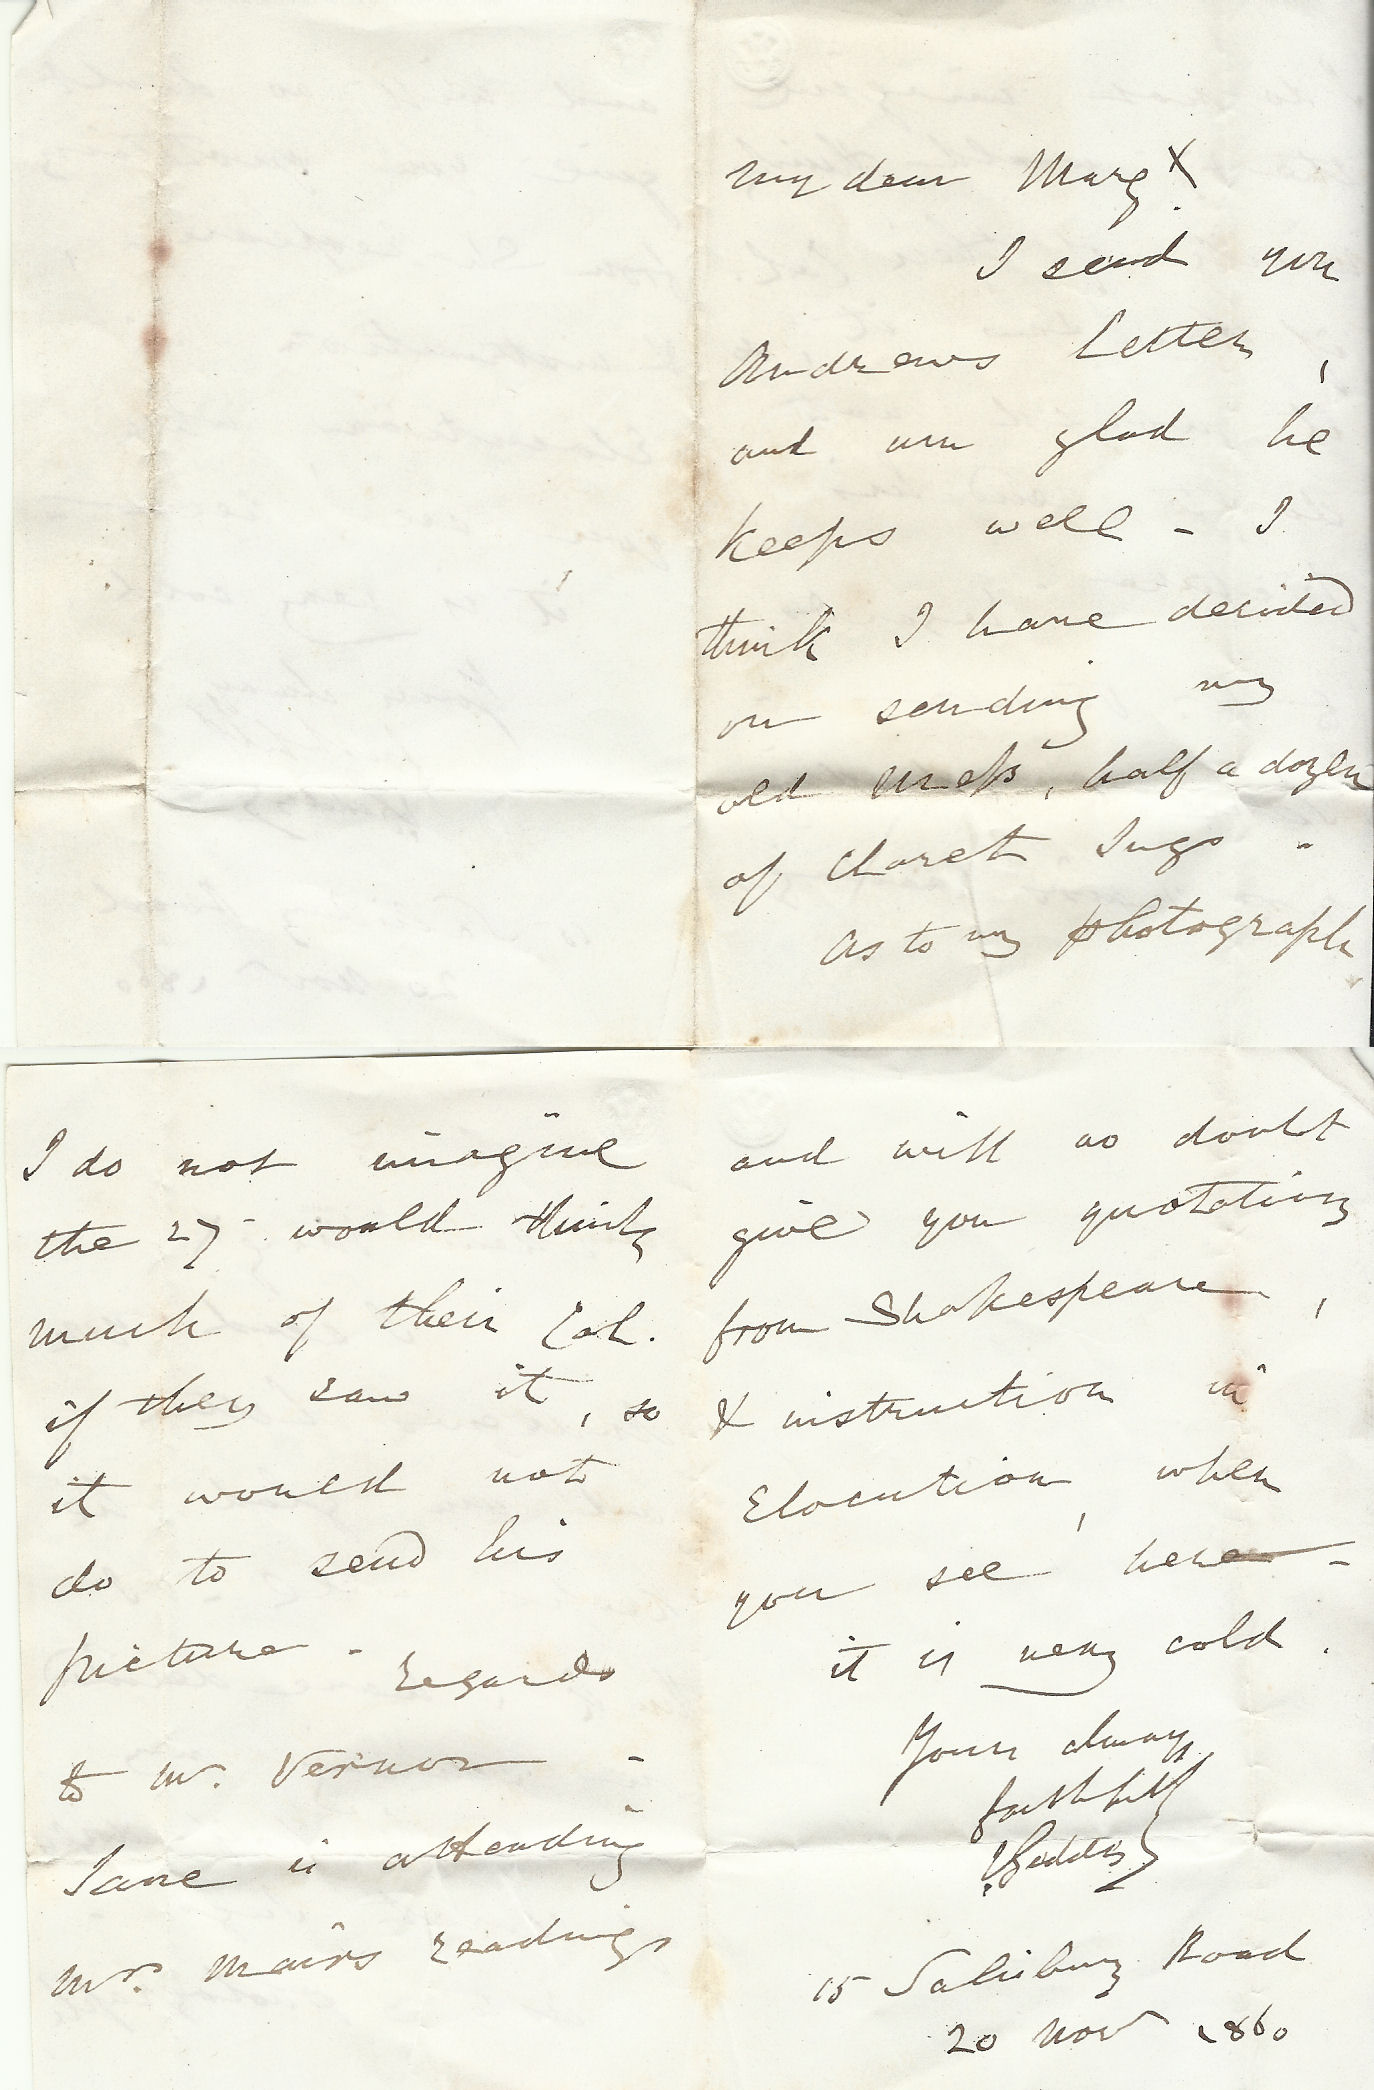 My dear Margt
I send you
Andrews Letter,
and am glad he
keeps well - I
think I have decided
on sending my
old Mess, half a dozen
of Claret Jugs -
As to my photograph
I do not imagine
the 27 - would think
much of their Col.
if they saw it, so
it would not
do to send his
picture - Regards
to Mr. Vernor -
Jane is attending
Mrs. Mairs readings
and will no doubt
give you quotations
from Shakespeare,
& instruction in
Elocution, when
you see her -
it is very cold.
Yours always
faithfully
Geddes
15 Salisbury Road
20 Novr 1860